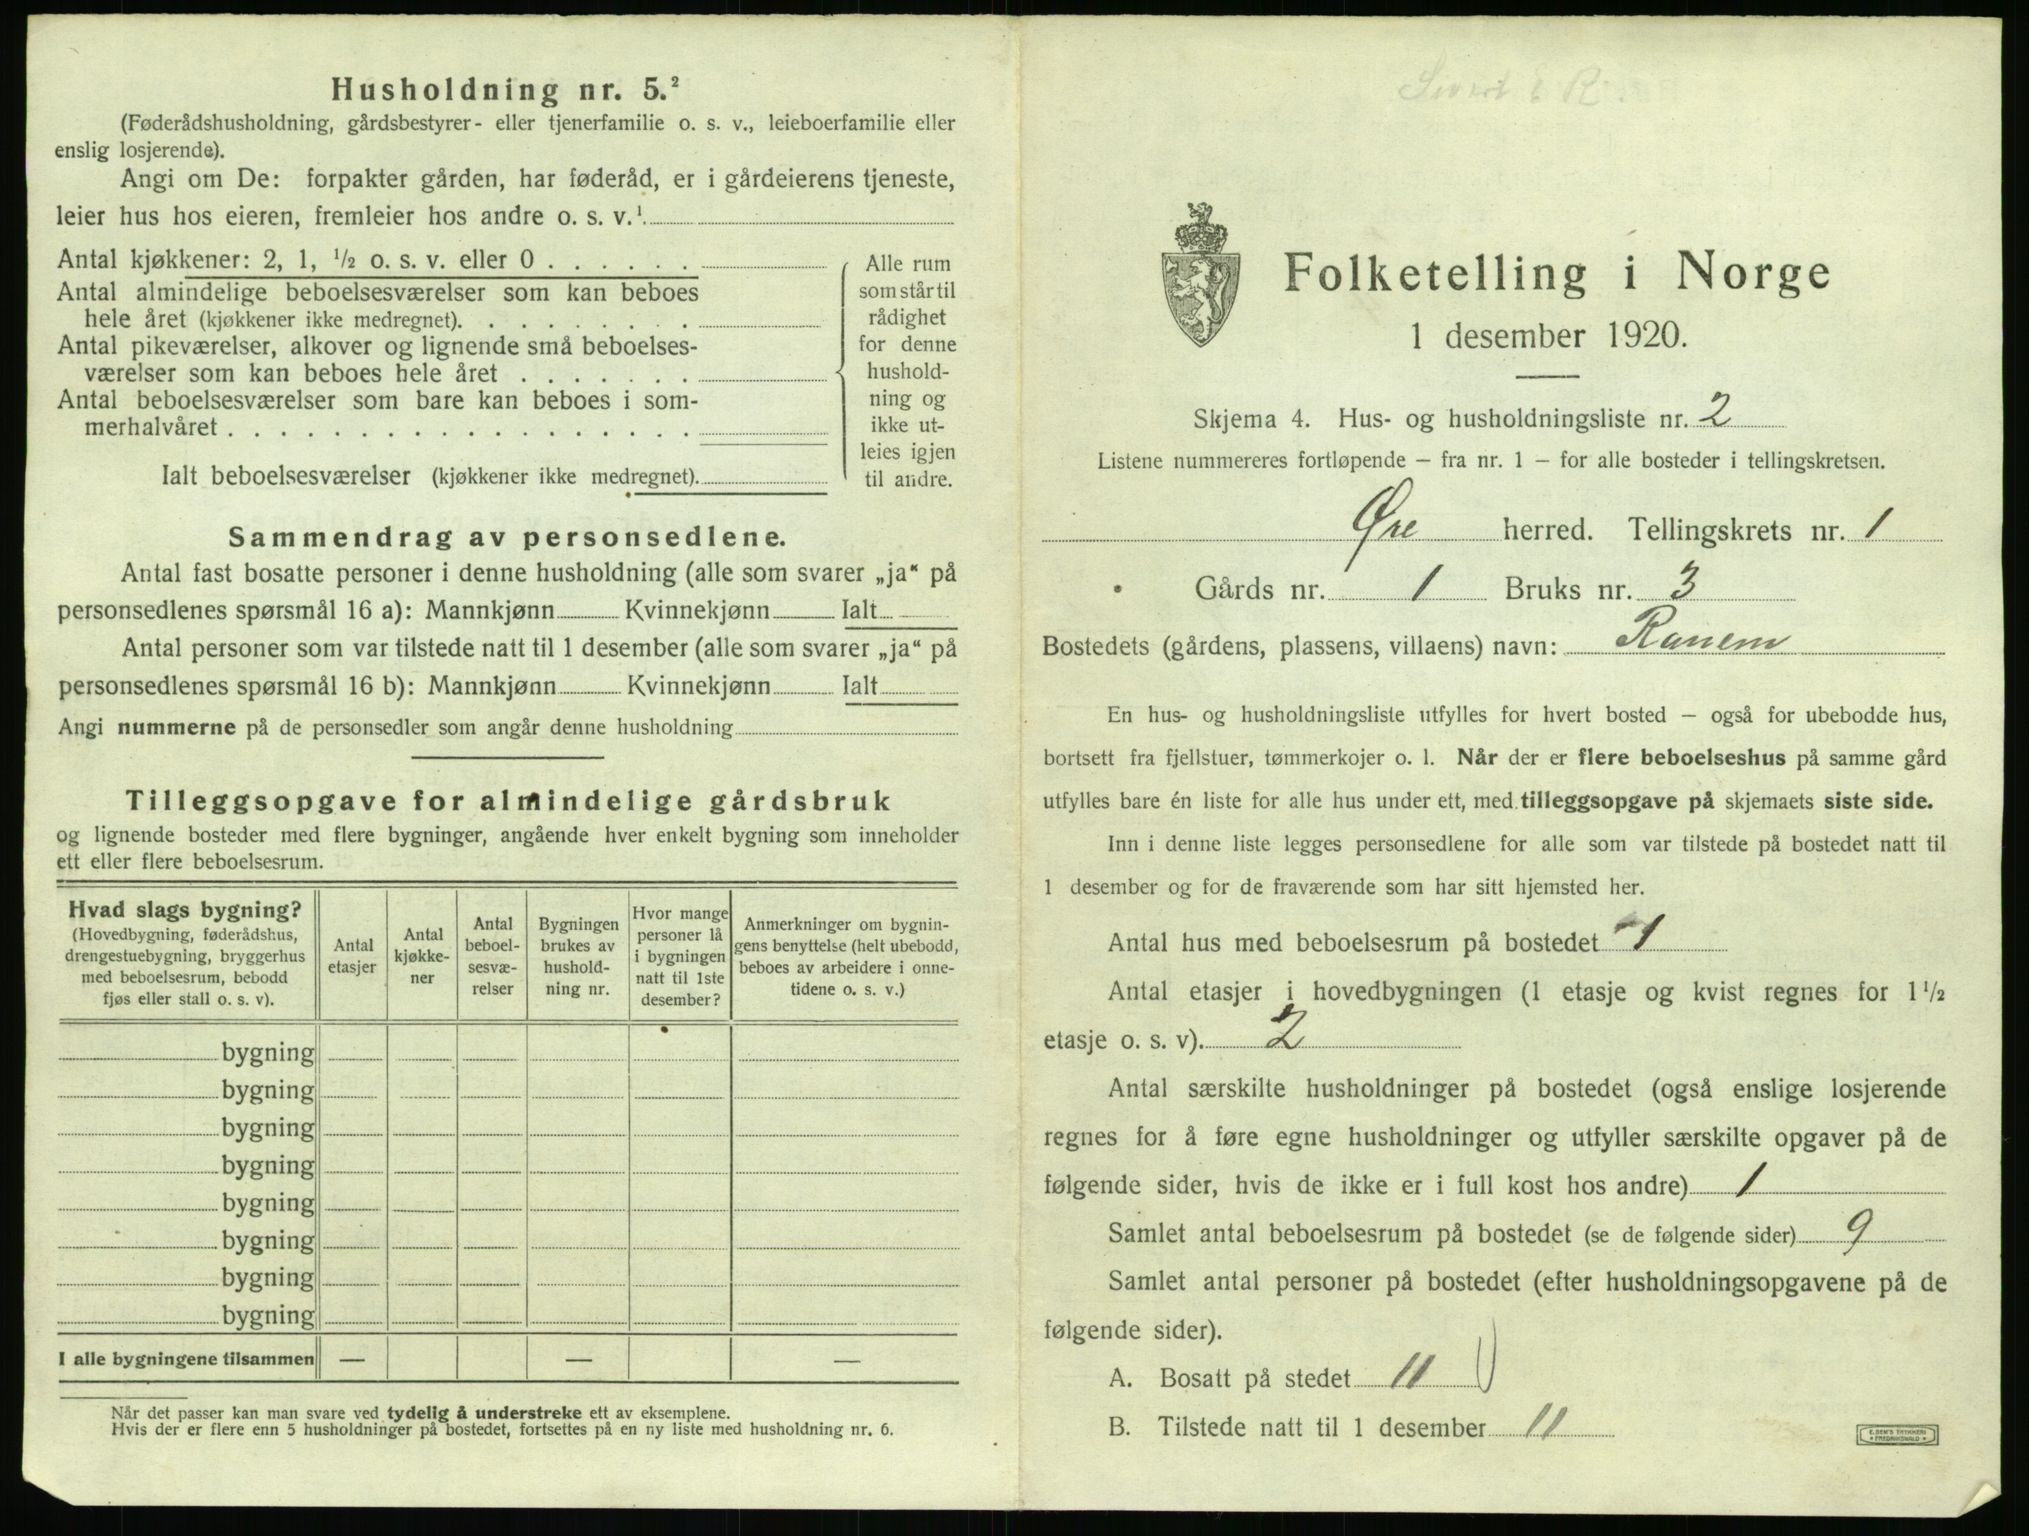 Husholdning nr. 5.²
(Føderådshusholdning, gårdsbestyrer- eller tjenerfamilie o. s. v., leieboerfamilie eller
enslig losjerende).
Angi om De: forpakter gården, har føderåd, er i gårdeierens tjeneste,
leier hus hos eieren, fremleier hos andre o. s. v.¹
Antal kjøkkener: 2, 1, ½ o. s. v. eller 0 . . . . . .
Antal almindelige beboelsesværelser som kan beboes
hele året (kjøkkener ikke medregnet). . . . . . . . .
Antal pikeværelser, alkover og lignende små beboelses-
værelser som kan beboes hele året . . . . . . .
Antal beboelsesværelser som bare kan beboes i som-
merhalvåret . . . . . . . . . . . . . . . . . .
Ialt beboelsesværelser (kjøkkener ikke medregnet).
Alle rum
som står til
rådighet
for denne
hushold-
ning og
ikke ut-
leies igjen
til andre.
Sammendrag av personsedlene.
Antal fast bosatte personer i denne husholdning (alle som svarer „ja“ på
personsedlenes spørsmål 16 a): Mannkjønn Kvinnekjønn Ialt
Antal personer som var tilstede natt til 1 desember (alle som svarer „ja“ på
personsedlenes spørsmål 16 b): Mannkjønn Kvinnekjønn Ialt
Angi nummerne på de personsedler som angår denne husholdning
Tilleggsopgave for almindelige gårdsbruk
og lignende bosteder med flere bygninger, angående hver enkelt bygning som inneholder
ett eller flere beboelsesrum.
Hvad slags bygning?
(Hovedbygning, føderådshus,
drengestuebygning, bryggerhus
med beboelsesrum, bebodd
fjøs eller stall o. s. v).
Antal
etasjer
Antal
kjøkke-
ner
Antal
beboel-
sesvæ-
relser
Bygningen
brukes av
hushold-
ning nr.
Hvor mange
personer lå
i bygningen
natt til 1ste
desember?
Anmerkninger om bygnin-
gens benyttelse (helt ubebodd,
beboes av arbeidere i onne-
tidene o. s. v.)
bygning
bygning
bygning
bygning
bygning
bygning
bygning
bygning
I alle bygningene tilsammen — — —
Når det passer kan man svare ved tydelig å understreke ett av eksemplene.
Hvis der er flere enn 5 husholdninger på bostedet, fortsettes på en ny liste med husholdning nr. 6.
Folketelling i Norge
1 desember 1920.
Skjema 4. Hus- og husholdningsliste nr. 2
Listene nummereres fortløpende – fra nr. 1 – for alle bosteder i tellingskretsen.
Øre herred. Tellingskrets nr. 1
Gårds nr. 1 Bruks nr. 3
Bostedets (gårdens, plassens, villaens) navn: Ranem
En hus- og husholdningsliste utfylles for hvert bosted – også for ubebodde hus,
bortsett fra fjellstuer, tømmerkojer o. l. Når der er flere beboelseshus på samme gård
utfylles bare én liste for alle hus under ett, med tilleggsopgave på skjemaets siste side.
Inn i denne liste legges personsedlene for alle som var tilstede på bostedet natt til
1 desember og for de fraværende som har sitt hjemsted her.
Antal hus med beboelsesrum på bostedet 1
Antal etasjer i hovedbygningen (1 etasje og kvist regnes for 1½
etasje o. s. v). 2
Antal særskilte husholdninger på bostedet (også enslige losjerende
regnes for å føre egne husholdninger og utfyller særskilte opgaver på de
følgende sider, hvis de ikke er i full kost hos andre) 1
Samlet antal beboelsesrum på bostedet (se de følgende sider) 9
Samlet antal personer på bostedet (efter husholdningsopgavene på de
følgende sider).
A. Bosatt på stedet 11
B. Tilstede natt til 1 desember 11